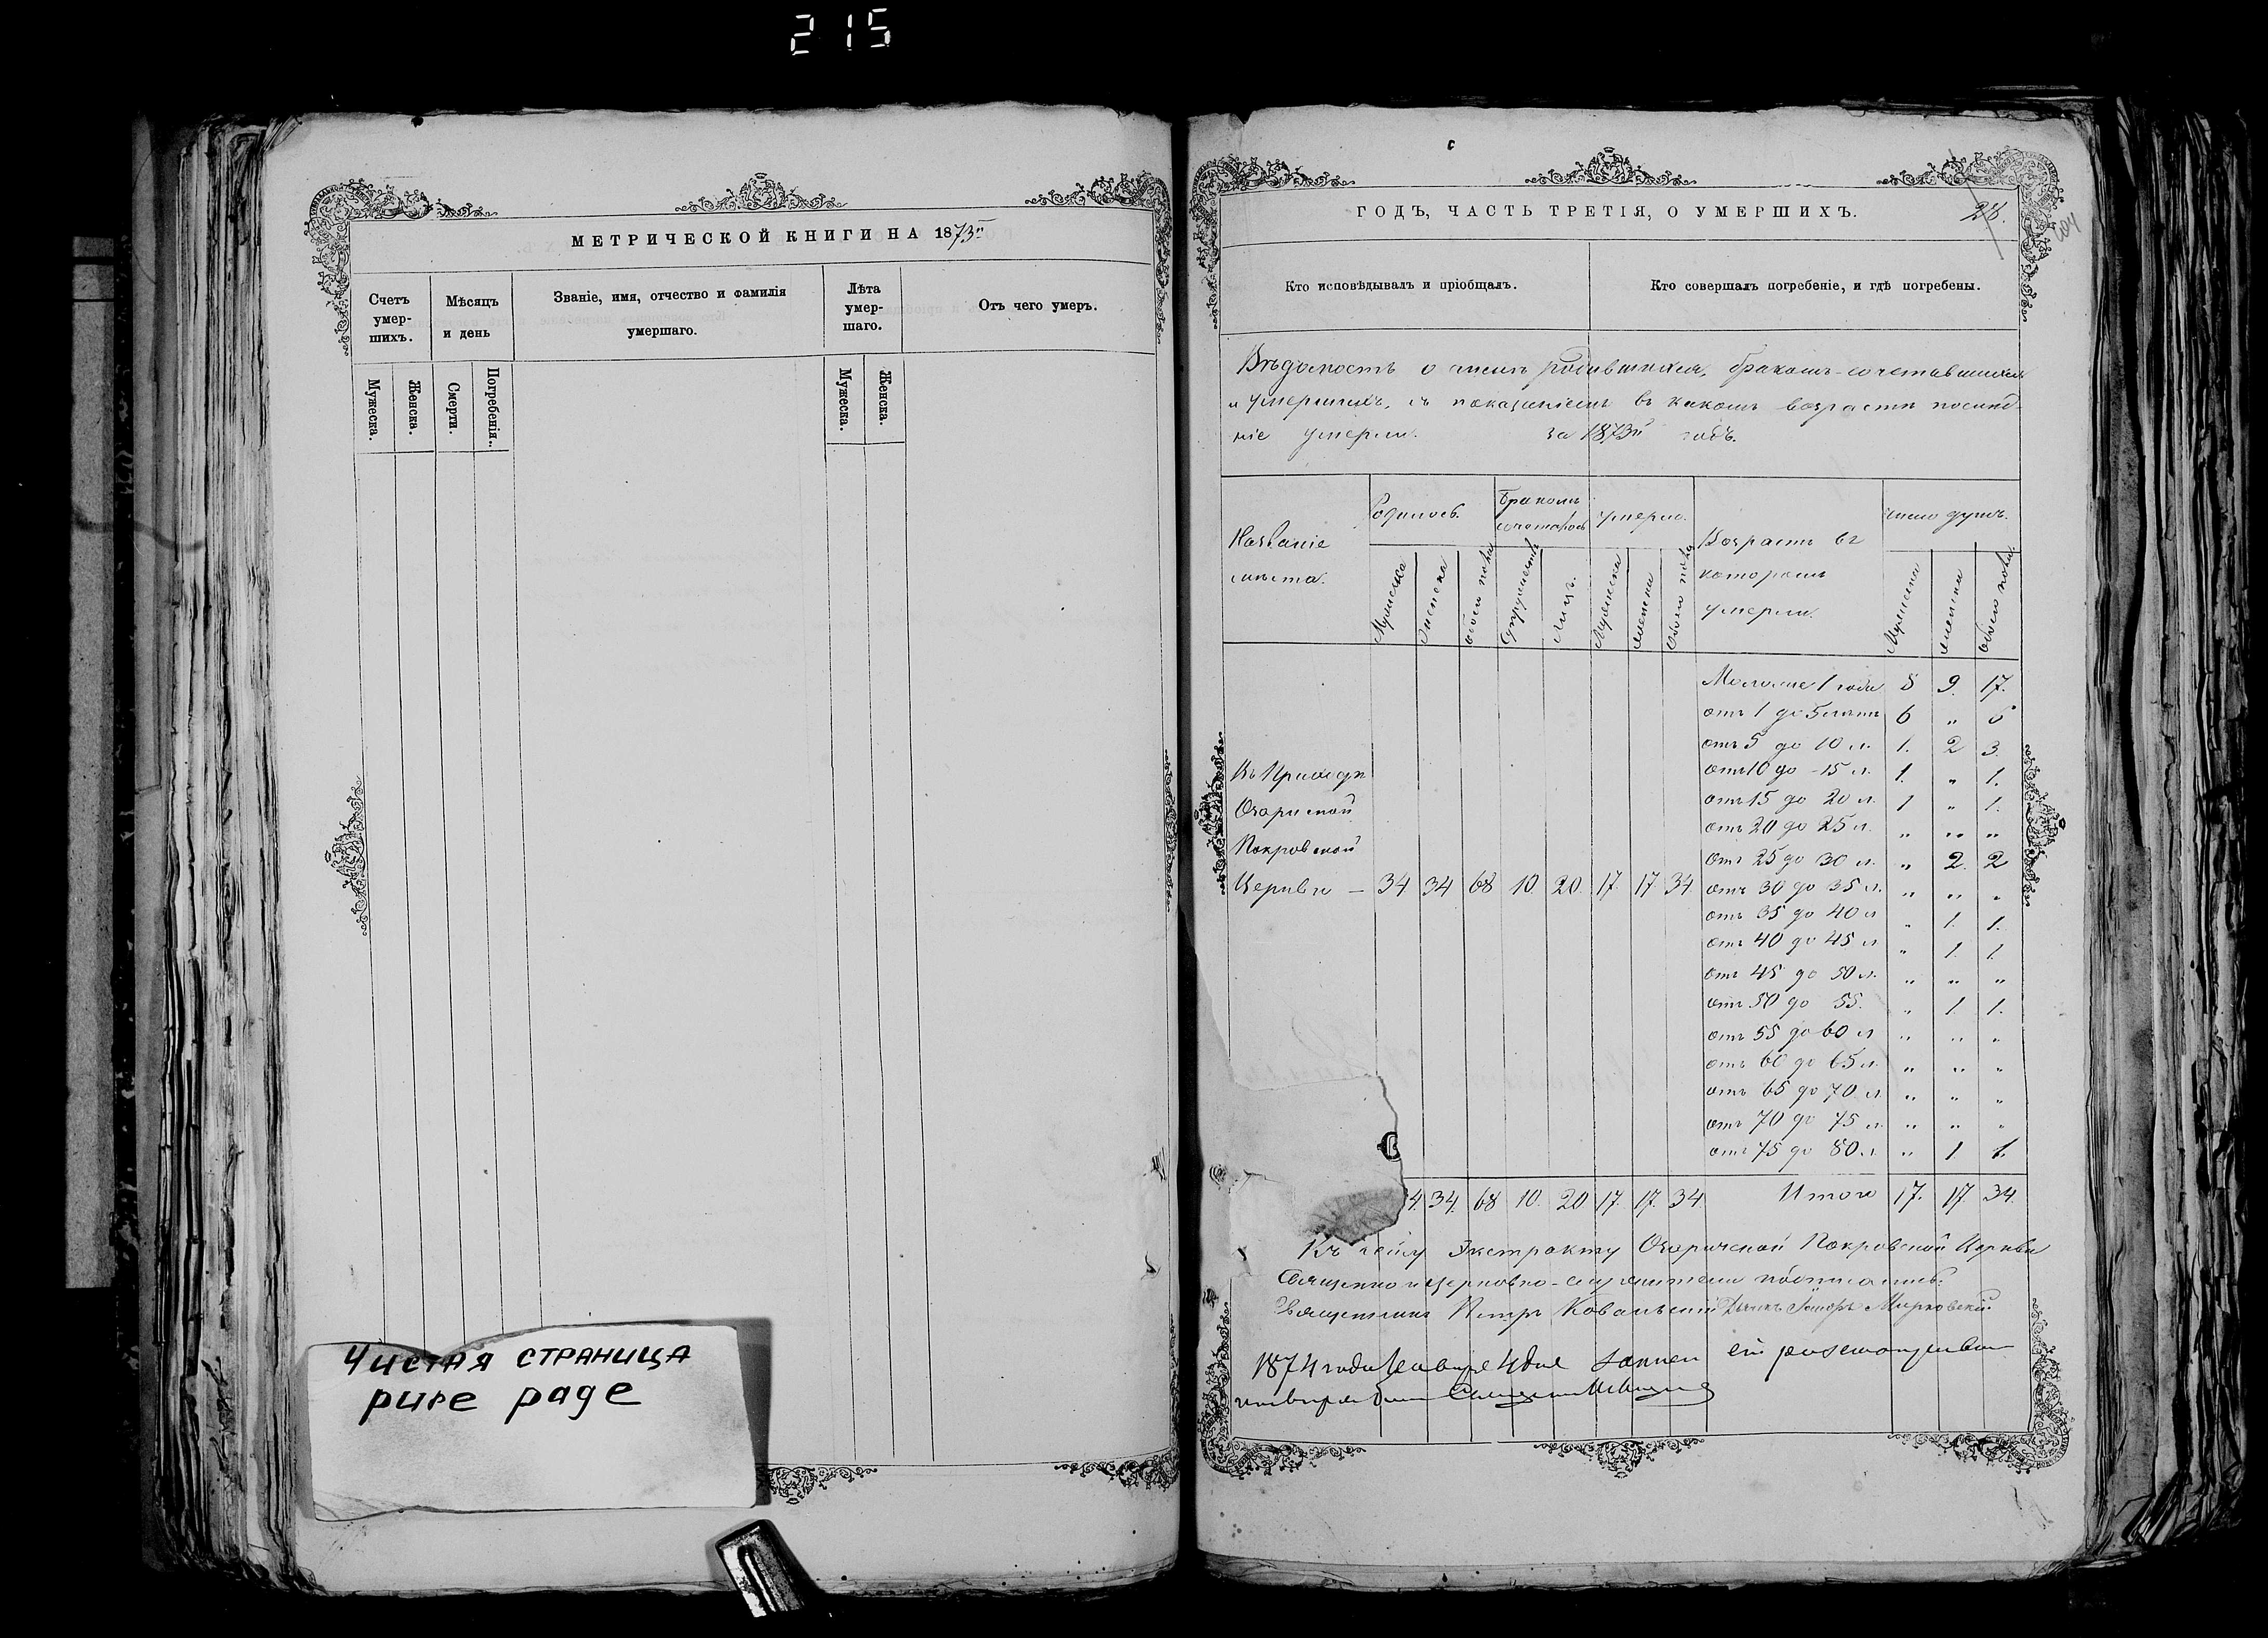 215
МЕТРИЧЕСКОЙ КНИГИ НА 1873й
Счетъ умер-шихъ.
Мѣсяцъ и день
Званіе, имя, отчество и фамилія умершаго.
Лѣта умер-шаго.
Отъ чего умеръ.
Мужеска.
Женска.
Смерти.
Погребенія.
Мужеска.
Женска.
Чистая страница
pure page
ГОДЪ, ЧАСТЬ ТРЕТІЯ, О УМЕРШИХЪ.
28.
Кто исповѣдывалъ и пріобщалъ.
Кто совершалъ погребеніе, и гдѣ погребены.
Вѣдомость о числѣ родившихся, бракомъ-сочетавшихся
и умершихъ, съ показаніемъ въ какомъ возрастѣ послѣд-
ніе умерли. за 1873й годъ.
Названіе мѣста.
Родилось.
Бракомъ сочеталось
Умерло.
Возрастъ въ которомъ умерли.
Число душъ.
Мужеска
Женска
Обоего пола
Супружествъ
Лицъ.
Мужеска
Женска
Обоего пола
Мужеска
Женска
Обоего пола
Моложе 1 года 8 9. 17.
отъ 1 до 5 лѣтъ 6 „ 6
отъ 5 до 10 л. 1. 2 3.
отъ 10 до 15 л. 1. „ 1.
отъ 15 до 20 л. 1 „ 1.
отъ 20 до 25 л. „ „ „
отъ 25 до 30 л. „ 2. 2
Въ Приходѣ
Покровской
Церкви — 34 34 68 10 20 17. 17 34
отъ 30 до 35 л. „ „ „
отъ 35 до 40 л „ 1. 1.
отъ 40 до 45 л „ 1. 1.
отъ 45 до 50 л. „ „ „
отъ 50 до 55. „ 1. 1.
отъ 55 до 60 л „ „ „
отъ 60 до 65 л. „ „ „
отъ 65 до 70 л. „ „ „
отъ 70 до 75 л. „ „ „
отъ 75 до 80 л. „ 1 1.
4. 34. 68 10. 20 17. 17. 34. Итого 17. 17 34.
Къ сему Экстракту Озаричской Покровской Церкви
Священно и церковно-служители подписались:
Священникъ Петръ Ковальскій Дьячк Марковскій
1874 года Января 4 дня